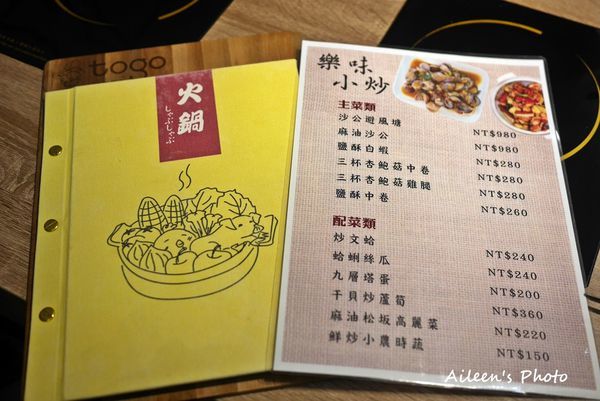 togo
火鍋
しゃぶしゃぶ
樂味
小炒
主菜類
沙公避風塘 NT$980
麻油沙公 NT$980
鹽酥白蝦 NT$280
三杯杏鮑菇中卷 NT$280
三杯杏鮑菇雞腿 NT$280
鹽酥中卷 NT$260
配菜類
炒文蛤 NT$240
蛤蜊絲瓜 NT$240
九層塔蛋 NT$200
干貝炒蘆筍 NT$360
麻油松坂高麗菜 NT$220
鮮炒小農時蔬 NT$150
Aileen's Photo